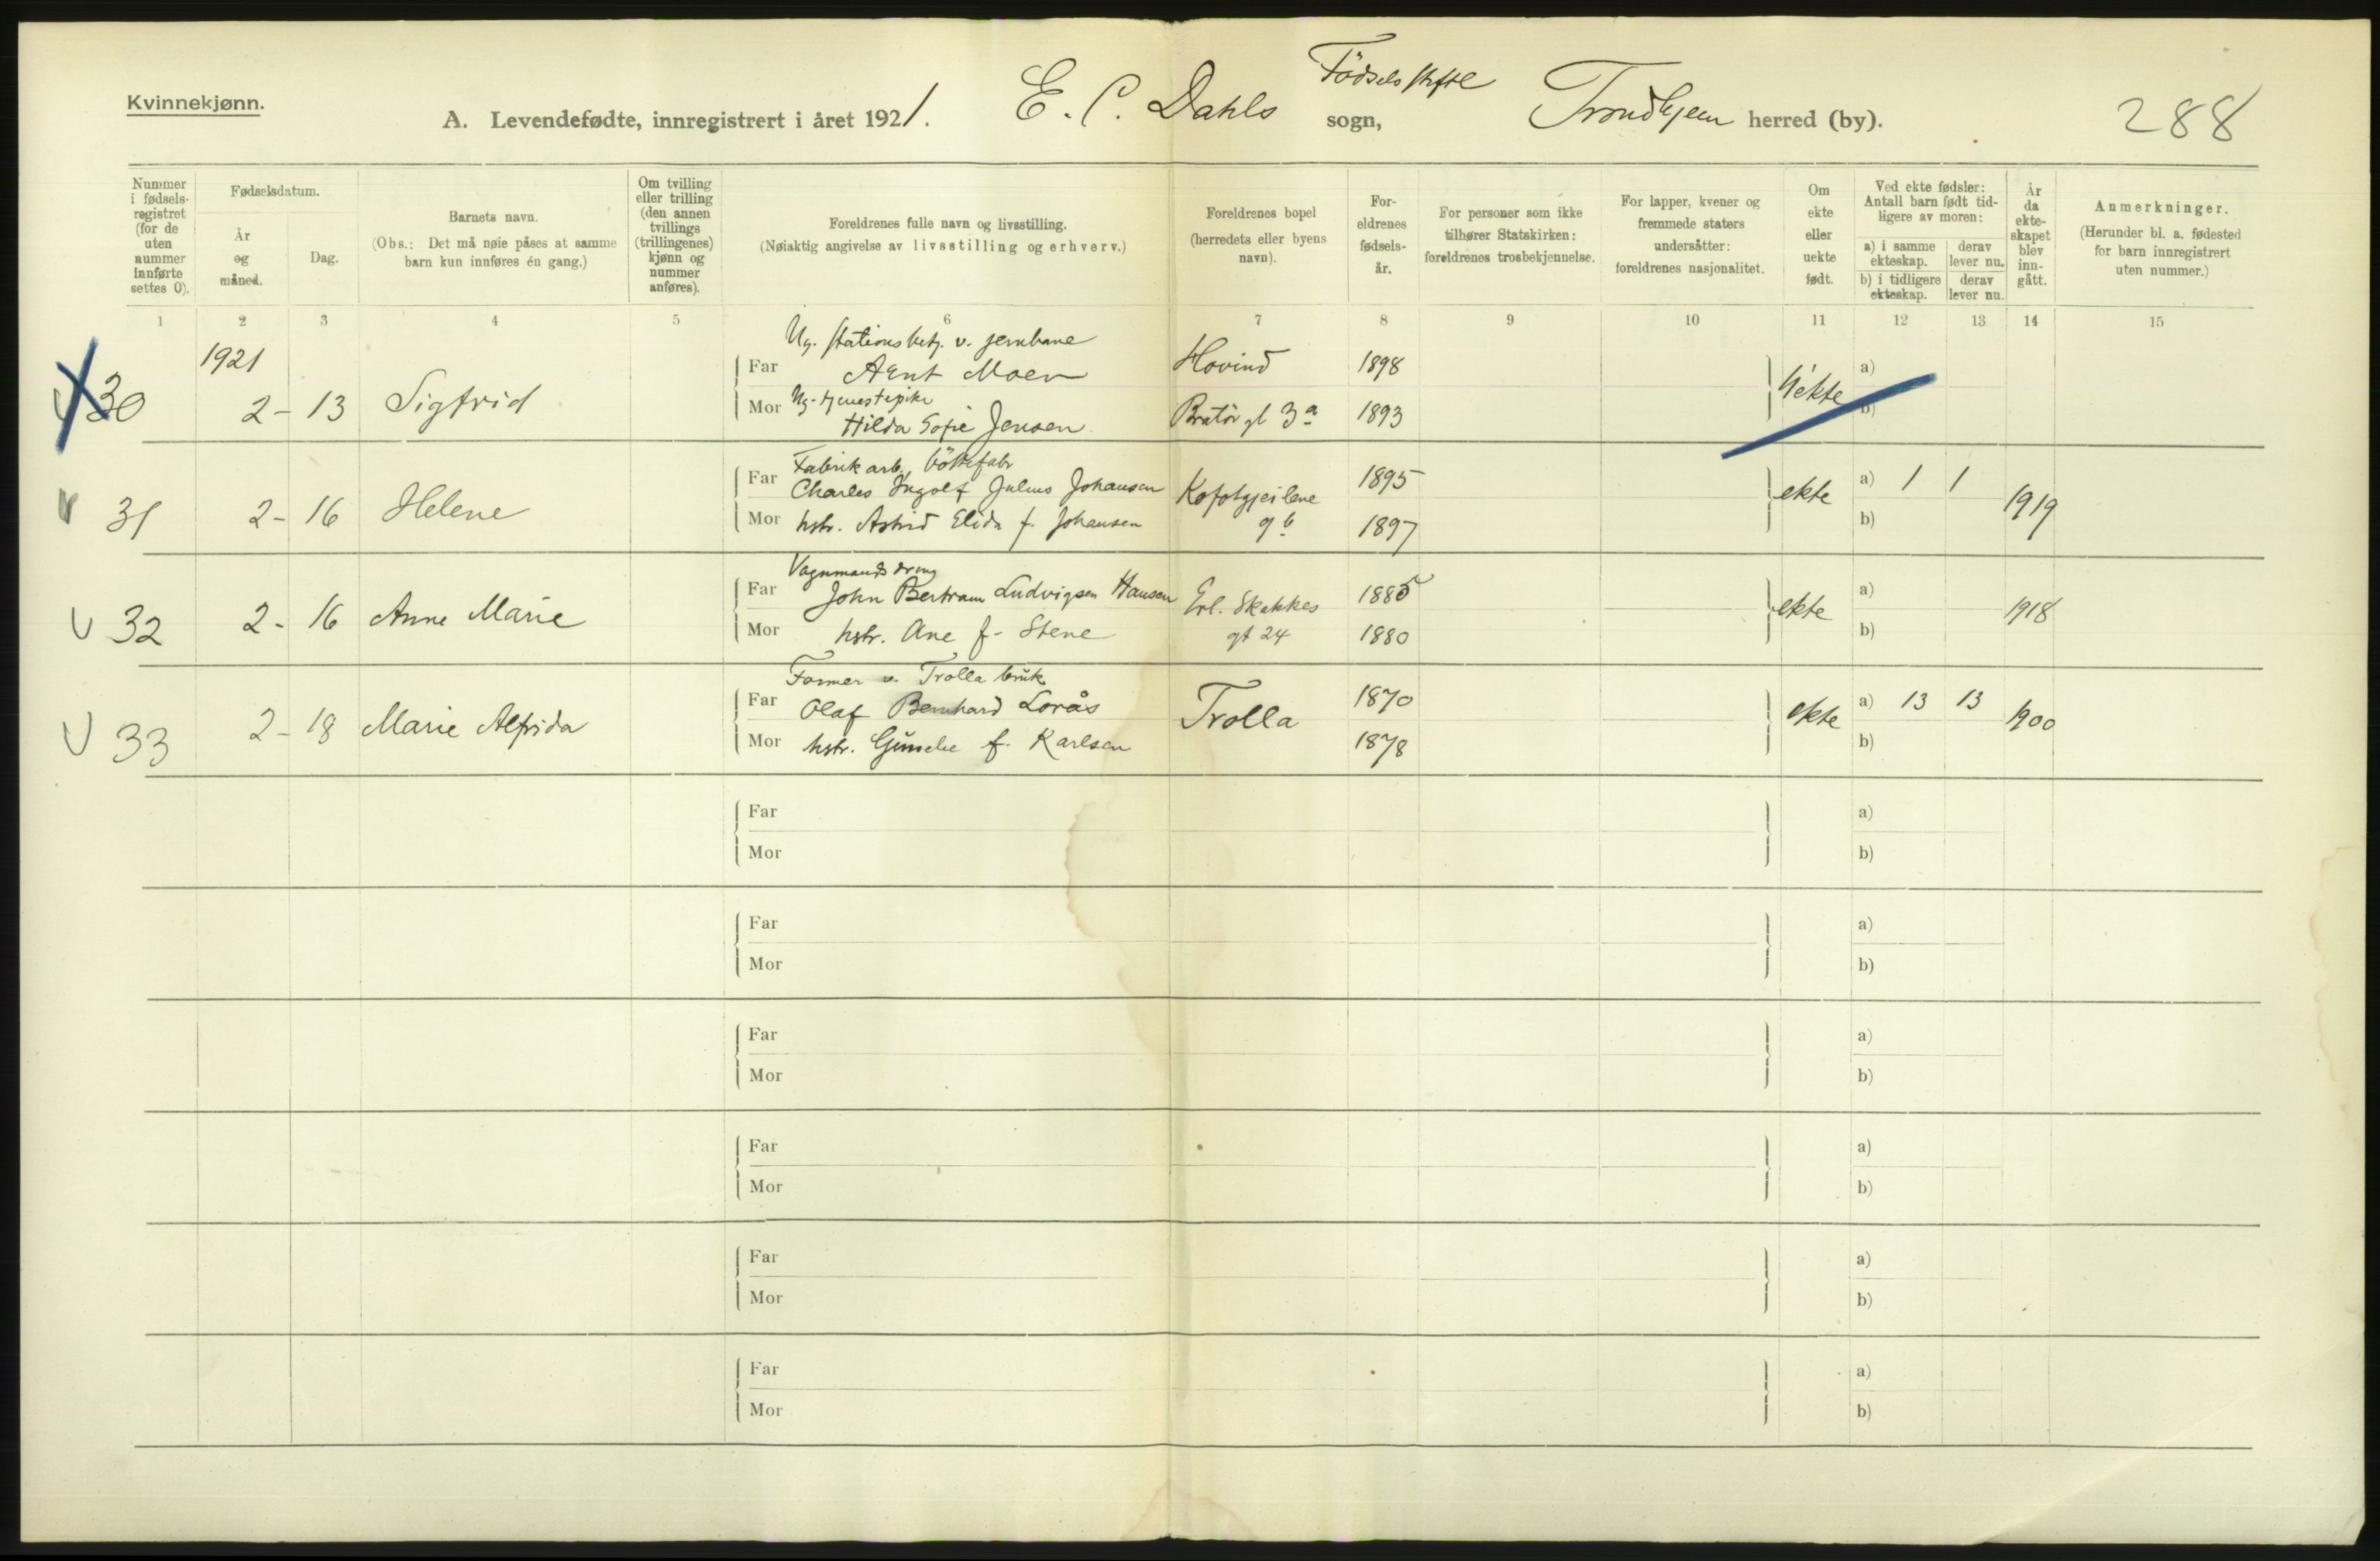 Kvinnekjønn.
A. Levendefødte, innregistrert i året 1921. E. C. Dahls Fødselsstiftelse sogn, Trondhjem herred (by). 288
Nummer i fødselsregistret (for de uten nummer innførte settes 0).
Fødselsdatum.
År og måned.
Dag.
Barnets navn.
(Obs.: Det må nøie påses at samme barn kun innføres én gang.)
Om tvilling eller trilling (den annen tvillings (trillingenes) kjønn og nummer anføres).
Foreldrenes fulle navn og livsstilling.
(Nøiaktig angivelse av livsstilling og erhverv.)
Foreldrenes bopel (herredets eller byens navn).
Foreldrenes fødselsår.
For personer som ikke tilhører Statskirken: foreldrenes trosbekjennelse.
For lapper, kvener og fremmede staters undersåtter: foreldrenes nasjonalitet.
Om ekte eller uekte født.
Ved ekte fødsler: Antall barn født tidligere av moren:
a) i samme ekteskap.
derav lever nu.
b) i tidligere ekteskap.
derav lever nu.
År da ekteskapet blev inngått.
Anmerkninger.
(Herunder bl. a. fødested for barn innregistrert uten nummer.)
1 2 3 4 5 6 7 8 9 10 11 12 13 14 15
1921
Ug. stationsbetj. v. jernbane
30 2- 13 Sigfrid Far Arnt Moen Hovind 1898 Uekte a)
Ug. tjenestepike
Mor Hilda Sofie Jensen Bratörgt 3a 1893 b)
Fabrikarb.
31 2- 16 Helene Far Charles Ingolf Julius Johansen 1895 ekte a) 1 1 1919
Mor hstr. Astrid Elida f. Johansen 9b 1897 b)
Vognmandsdreng
32 2- 16 Anne Marie Far John Bertram Ludvigsen Hansen Erl. Skakkes 1885 ekte a) 1918
Mor hstr. Ane f. Stene gt 24 1880 b)
Former v. Trolla bruk
33 2- 18 Marie Alfrida Far Olaf Bernhard Lorås Trolla 1870 ekte a) 13 13 1900
Mor hstr. f. Karlsen 1878 b)
Far a)
Mor b)
Far a)
Mor b)
Far a)
Mor b)
Far a)
Mor b)
Far a)
Mor b)
Far a)
Mor b)